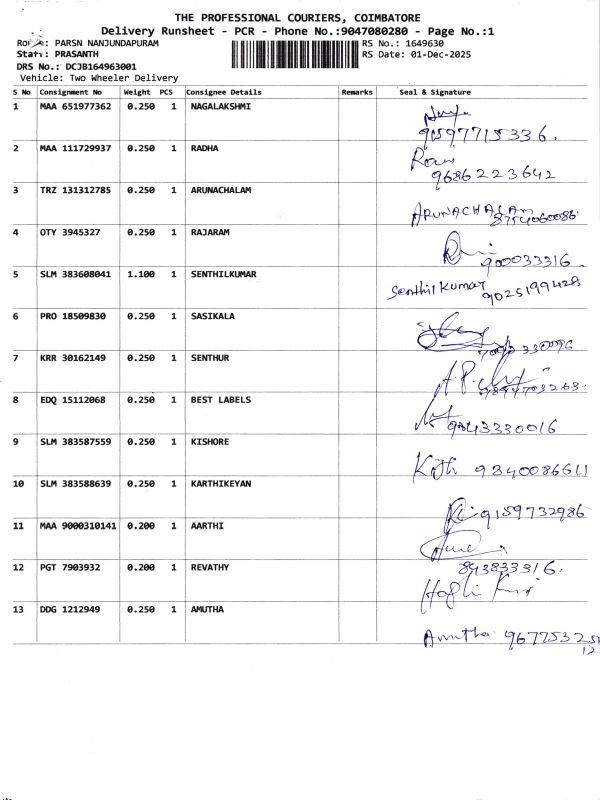 THE PROFESSIONAL COURIERS, COIMBATORE
Delivery Runsheet - PCR - Phone No.:9047080280 - Page No.:1
PARSN NANJUNDAPURAM RS No.: 1649630
: PRASANTH RS Date: 01-Dec-2025
DRS No.: DCJB164963001
Vehicle: Two Wheeler Delivery
S No Consignment No Weight PCS Consignee Details Remarks Seal & Signature
1 MAA 651977362 0.250 1 NAGALAKSHMI
91597715336.
2 MAA 111729937 0.250 1 RADHA
9686223642
3 TRZ 131312785 0.250 1 ARUNACHALAM
ARUNACHALAM 8754060086
4 OTY 3945327 0.250 1 RAJARAM
900033316.
5 SLM 383608041 1.100 1 SENTHILKUMAR
Senthil Kumar 9025199428
6 PRO 18509830 0.250 1 SASIKALA
7 KRR 30162149 0.250 1 SENTHUR
8 EDQ 15112068 0.250 1 BEST LABELS
9 SLM 383587559 0.250 1 KISHORE
9340086611
10 SLM 383588639 0.250 1 KARTHIKEYAN
9159732986
11 MAA 9000310141 0.200 1 AARTHI
12 PGT 7903932 0.200 1 REVATHY
843833316.
13 DDG 1212949 0.250 1 AMUTHA
Amutha